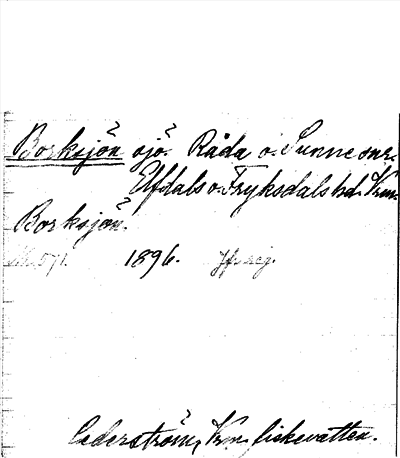 Borksjön sjö. Råda o. Sunne snr.
Elfdals o. Fryksdals hd. Vrm.
Borksjön.
1896.
Cederström, Vrm. fiskevatten.